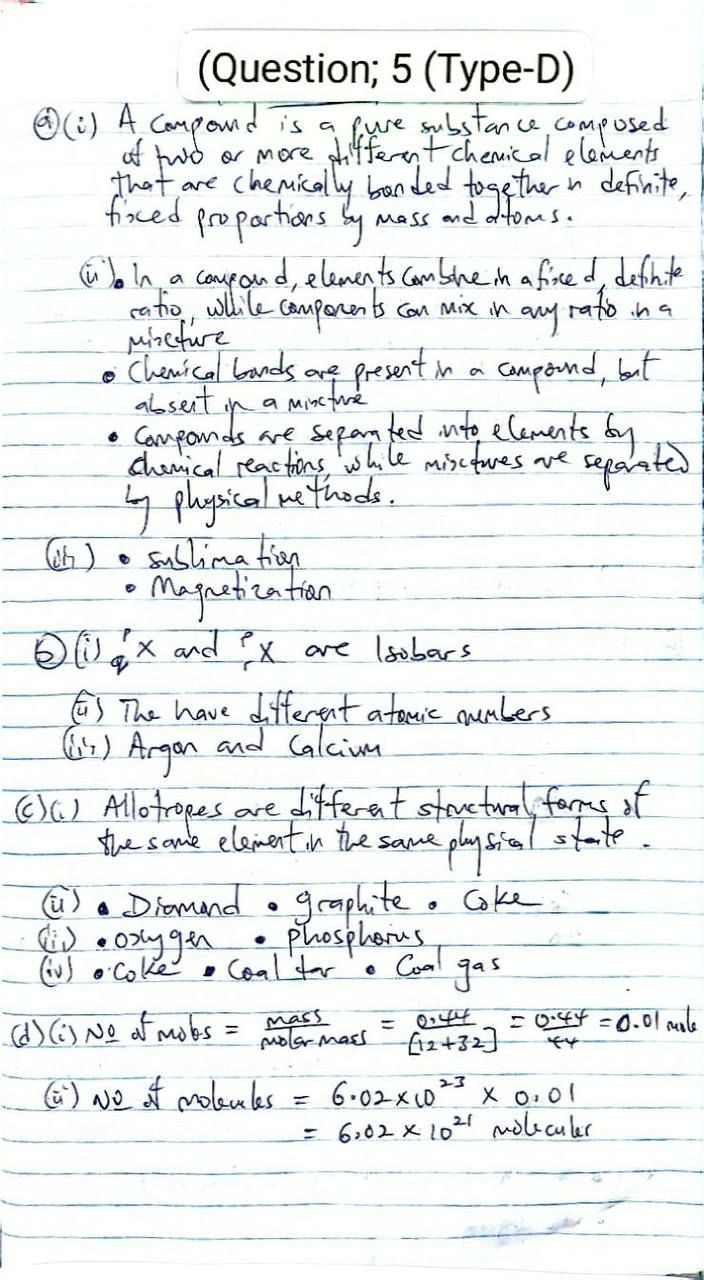 (Question; 5 (Type-D)
(a)(i) A Compound is a pure substance composed
of two or more different chemical elements
that are chemically bonded together in definite,
fixed proportions by mass and atoms.
(ii) • In a compound, elements combine in a fixed, definite
ratio, while components can mix in any ratio in a
mixture
• Chemical bonds are present in a compound, but
absent in a mixture
• Compounds are separated into elements by
chemical reactions, while mixtures are separated
by physical methods.
(iii) • Sublimation
• Magnetization
(b)(i) ᵖqX and ᵖrX are Isobars
(ii) The have different atomic numbers
(iii) Argon and Calcium
(c)(i) Allotropes are different structural forms of
the same element in the same physical state.
(ii) • Diamond • graphite • Coke
(iii) • oxygen • phosphorus
(iv) • Coke • Coal tar • Coal gas
(d)(i) No of moles = mass / molar mass = 0.44 / [12+32] = 0.44 / 44 = 0.01 mole
(ii) No of molecules = 6.02 × 10²³ × 0.01
= 6.02 × 10²¹ molecules